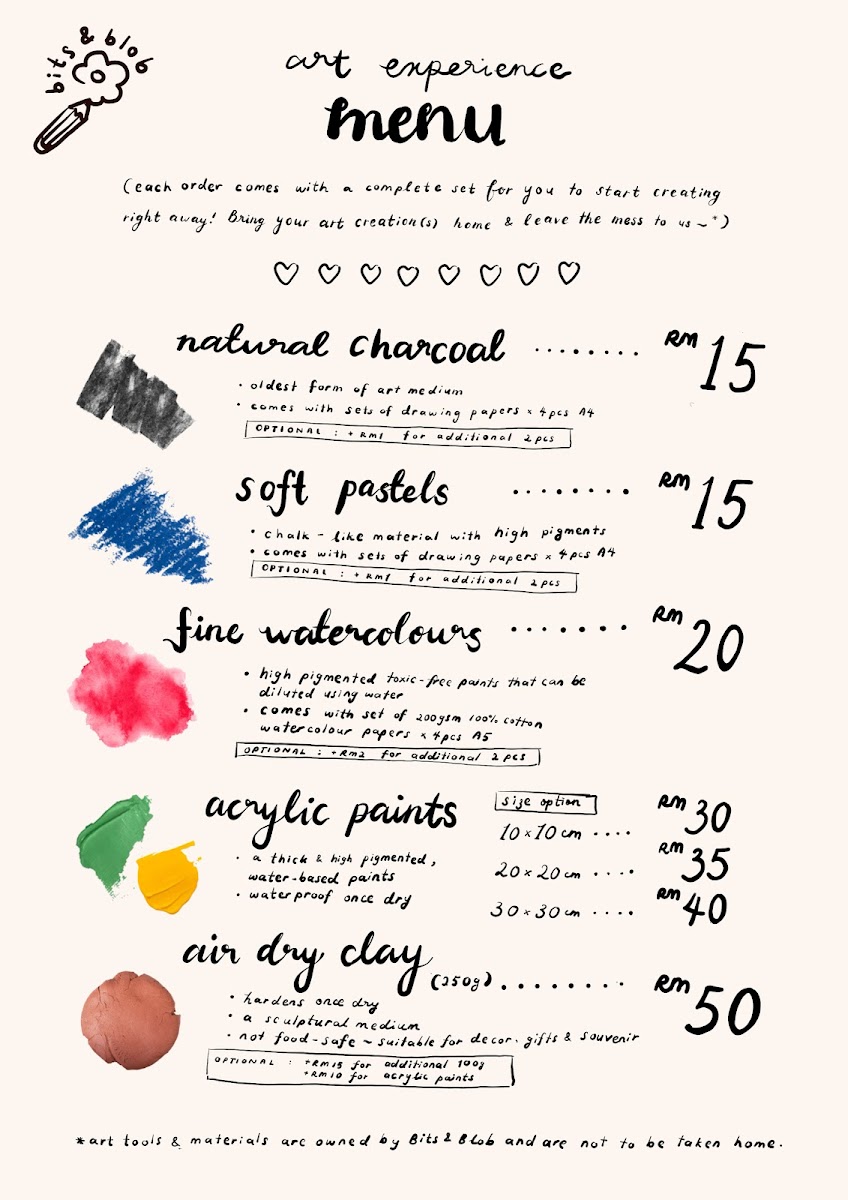 bits & blob
art experience
menu
(each order comes with a complete set for you to start creating
right away! Bring your art creation(s) home & leave the mess to us ~*)
natural charcoal ........ RM 15
• oldest form of art medium
• comes with sets of drawing papers x 4pcs A4
OPTIONAL : +RM1 for additional 2pcs
soft pastels ........ RM 15
• chalk - like material with high pigments
• comes with sets of drawing papers x 4pcs A4
OPTIONAL : +RM1 for additional 2pcs
fine watercolours ....... RM 20
• high pigmented toxic-free paints that can be
diluted using water
• comes with set of 200gsm 100% cotton
watercolour papers x 4pcs A5
OPTIONAL : +RM2 for additional 2pcs
acrylic paints
• a thick & high pigmented,
water-based paints
• waterproof once dry
size option
10x10cm .... RM 30
20x20cm .... RM 35
30x30cm .... RM 40
air dry clay (250g) ........ RM 50
• hardens once dry
• a sculptural medium
• not food-safe ~ suitable for decor, gifts & souvenir
OPTIONAL : +RM15 for additional 100g
+RM10 for acrylic paints
*art tools & materials are owned by Bits & Blob and are not to be taken home.